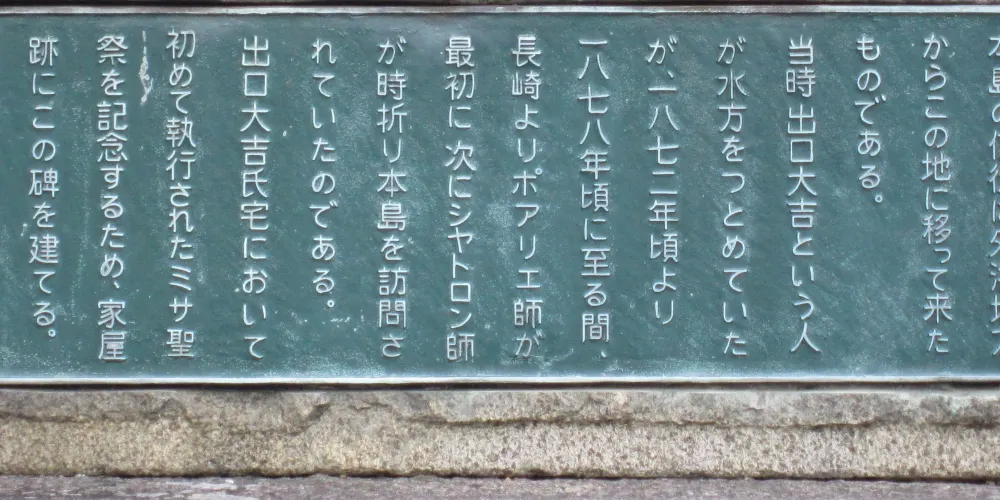 からこの地に移って来た
ものである。
当時出口大吉という人
が水方をつとめていた
が、一八七二年頃より
一八七八年頃に至る間、
長崎よりポアリエ師が
最初に次にシャトロン師
が時折り本島を訪問さ
れていたのである。
出口大吉氏宅において
初めて執行されたミサ聖
祭を記念するため、家屋
跡にこの碑を建てる。